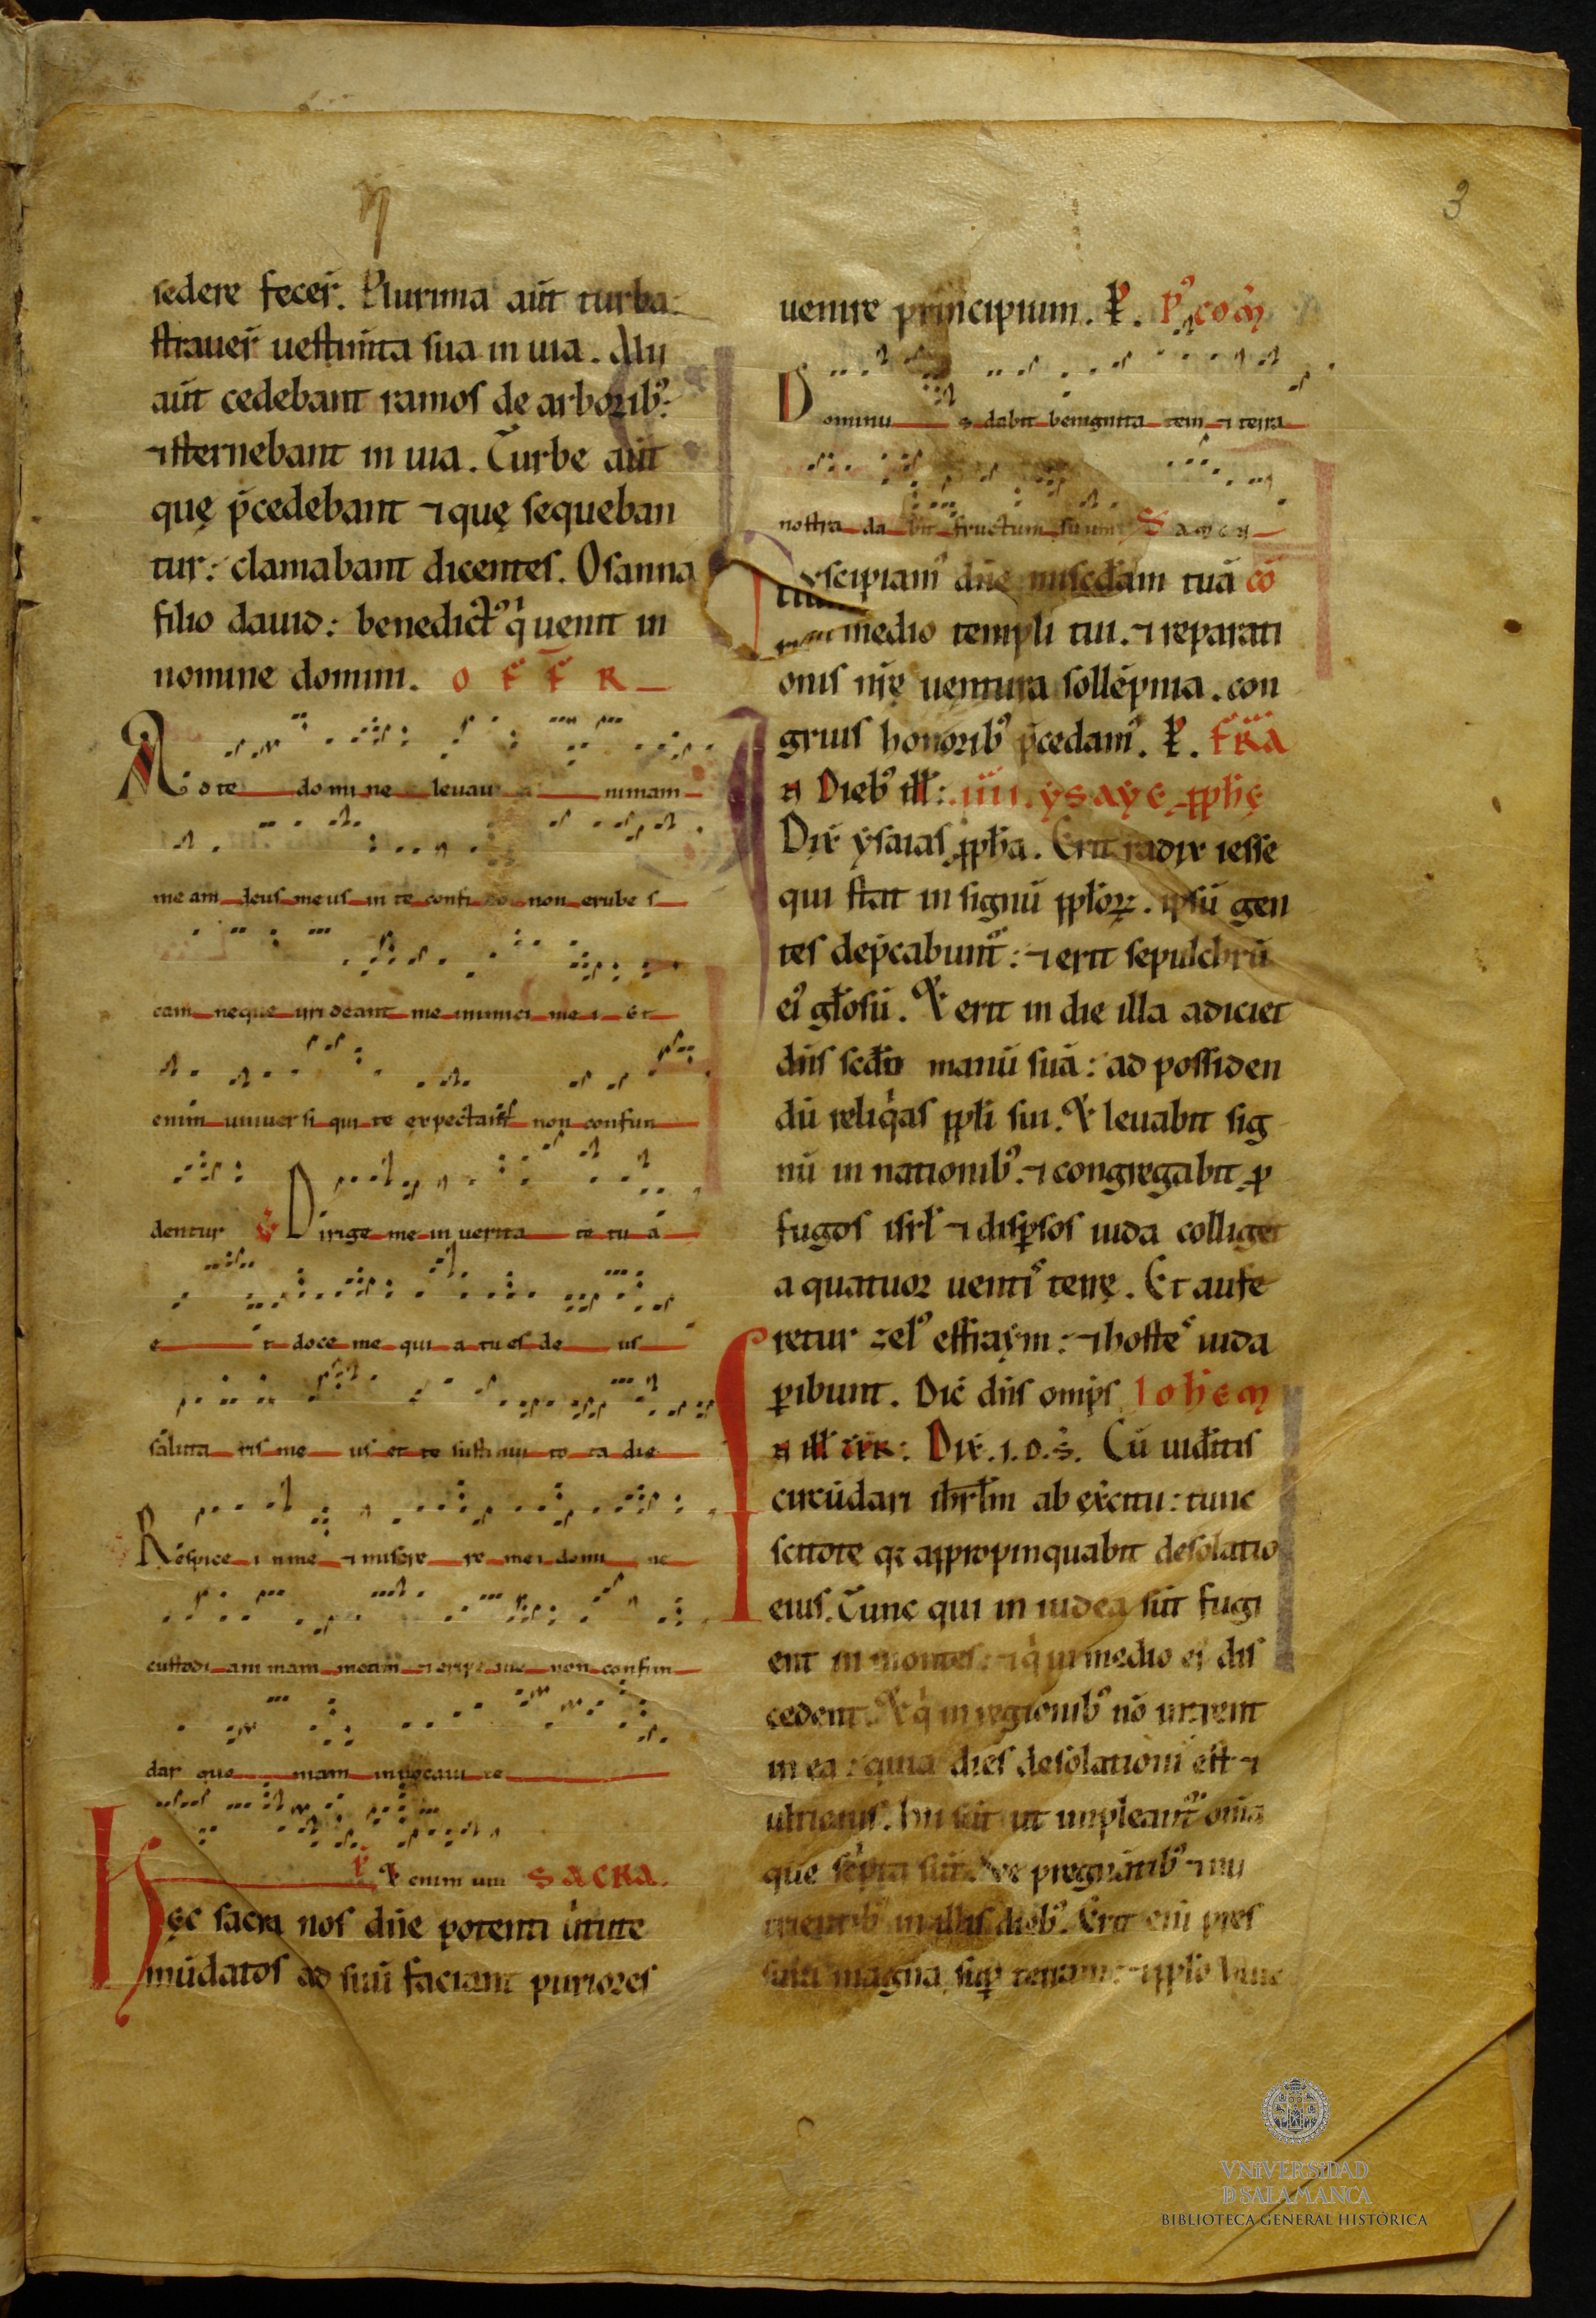 3
sedere fecer̄. Plurima aūt turba
strauer̄ uestim̄ta sua in uia. Alii
aūt cedebant ramos de arborib᷒:
⁊ sternebant in uia. Turbe aūt
quę p̄cedebant ⁊ quę sequeban
tur: clamabant dicentes. Osanna
filio dauid: benedict᷒ q̇ uenit in
nomine domini. OFFR
Ad te domine leuaui animam
meam deus meus in te confido non erubes
cam neque irrideant me inimici mei et
enim uniuersi qui te expectant non confun
dentur ℣ Dirige me in ueritate tua
et doce me quia tu es deus
salutaris meus et te sustinui tota die
Respice in me ⁊ miserere mei domine
custodi animam meam ⁊ eripe me non confun
dar quoniam inuocaui te
℟ Et enim uni SACRA.
Hęc sacra nos dn̄e potenti uirtute
mūdatos ad suū faciant puriores
uenire principium. P̄. P᷒ cōm
Dominus dabit benignitatem ⁊ terra
nostra dabit fructum suum
Suscipiam᷒ dn̄e mise᷒dam tuā cō
in medio templi tui. ⁊ reparati
onis nr̄ę uentura sollēpnia. con
gruis honorib᷒ p̄cedam᷒. P̄. FR̄A
In Dieb᷒ ill̄: .iiii. ysaye pph̄ę
Dix̄ ysaias pph̄a. Erit radix iesse
qui stat in signū ppl̄oꝝ. ipsū gen
tes dep̄cabunt᷒: ⁊ erit sepulchrū
ei᷒ gl̄osū. Et erit in die illa adiciet
dn̄s sc̄do manū suā: ad possiden
dū reliq̇as ppl̄i sui. Et leuabit sig
nū in nationib᷒. ⁊ congregabit ꝓ
fugos isrl̄ ⁊ disꝑsos iuda colliget
a quatuor uentis terrę. Et aufe
retur zel᷒ effraym: ⁊ hostes iuda
ꝑibunt. Dic̄ dn̄s omip̄s Ioh̄em
In ill̄ tēr: Dix̄. i. d. s̄. Cū uid̄itis
circūdari ih̄rl̄m ab ex̄citu: tunc
scitote qꝛ appropinquabit desolatio
eius. Tunc qui in iudea sūt fugi
ent in montes: ⁊ q̇ in medio ei᷒ dis
cedent. Et q̇ in regionib᷒ nō intrent
in ea: quia dies desolationi᷒ est ⁊
ultionis. hii sūt ut impleant᷒ om̄ia
que sc̄pta sūt. Ve pregnātib᷒ ⁊ nu
trientib᷒ in illis dieb᷒. Erit eni᷒ pres
sura magna suꝑ terram: ⁊ ppl̄o huic
VNIVERSIDAD
D SALAMANCA
BIBLIOTECA GENERAL HISTÓRICA